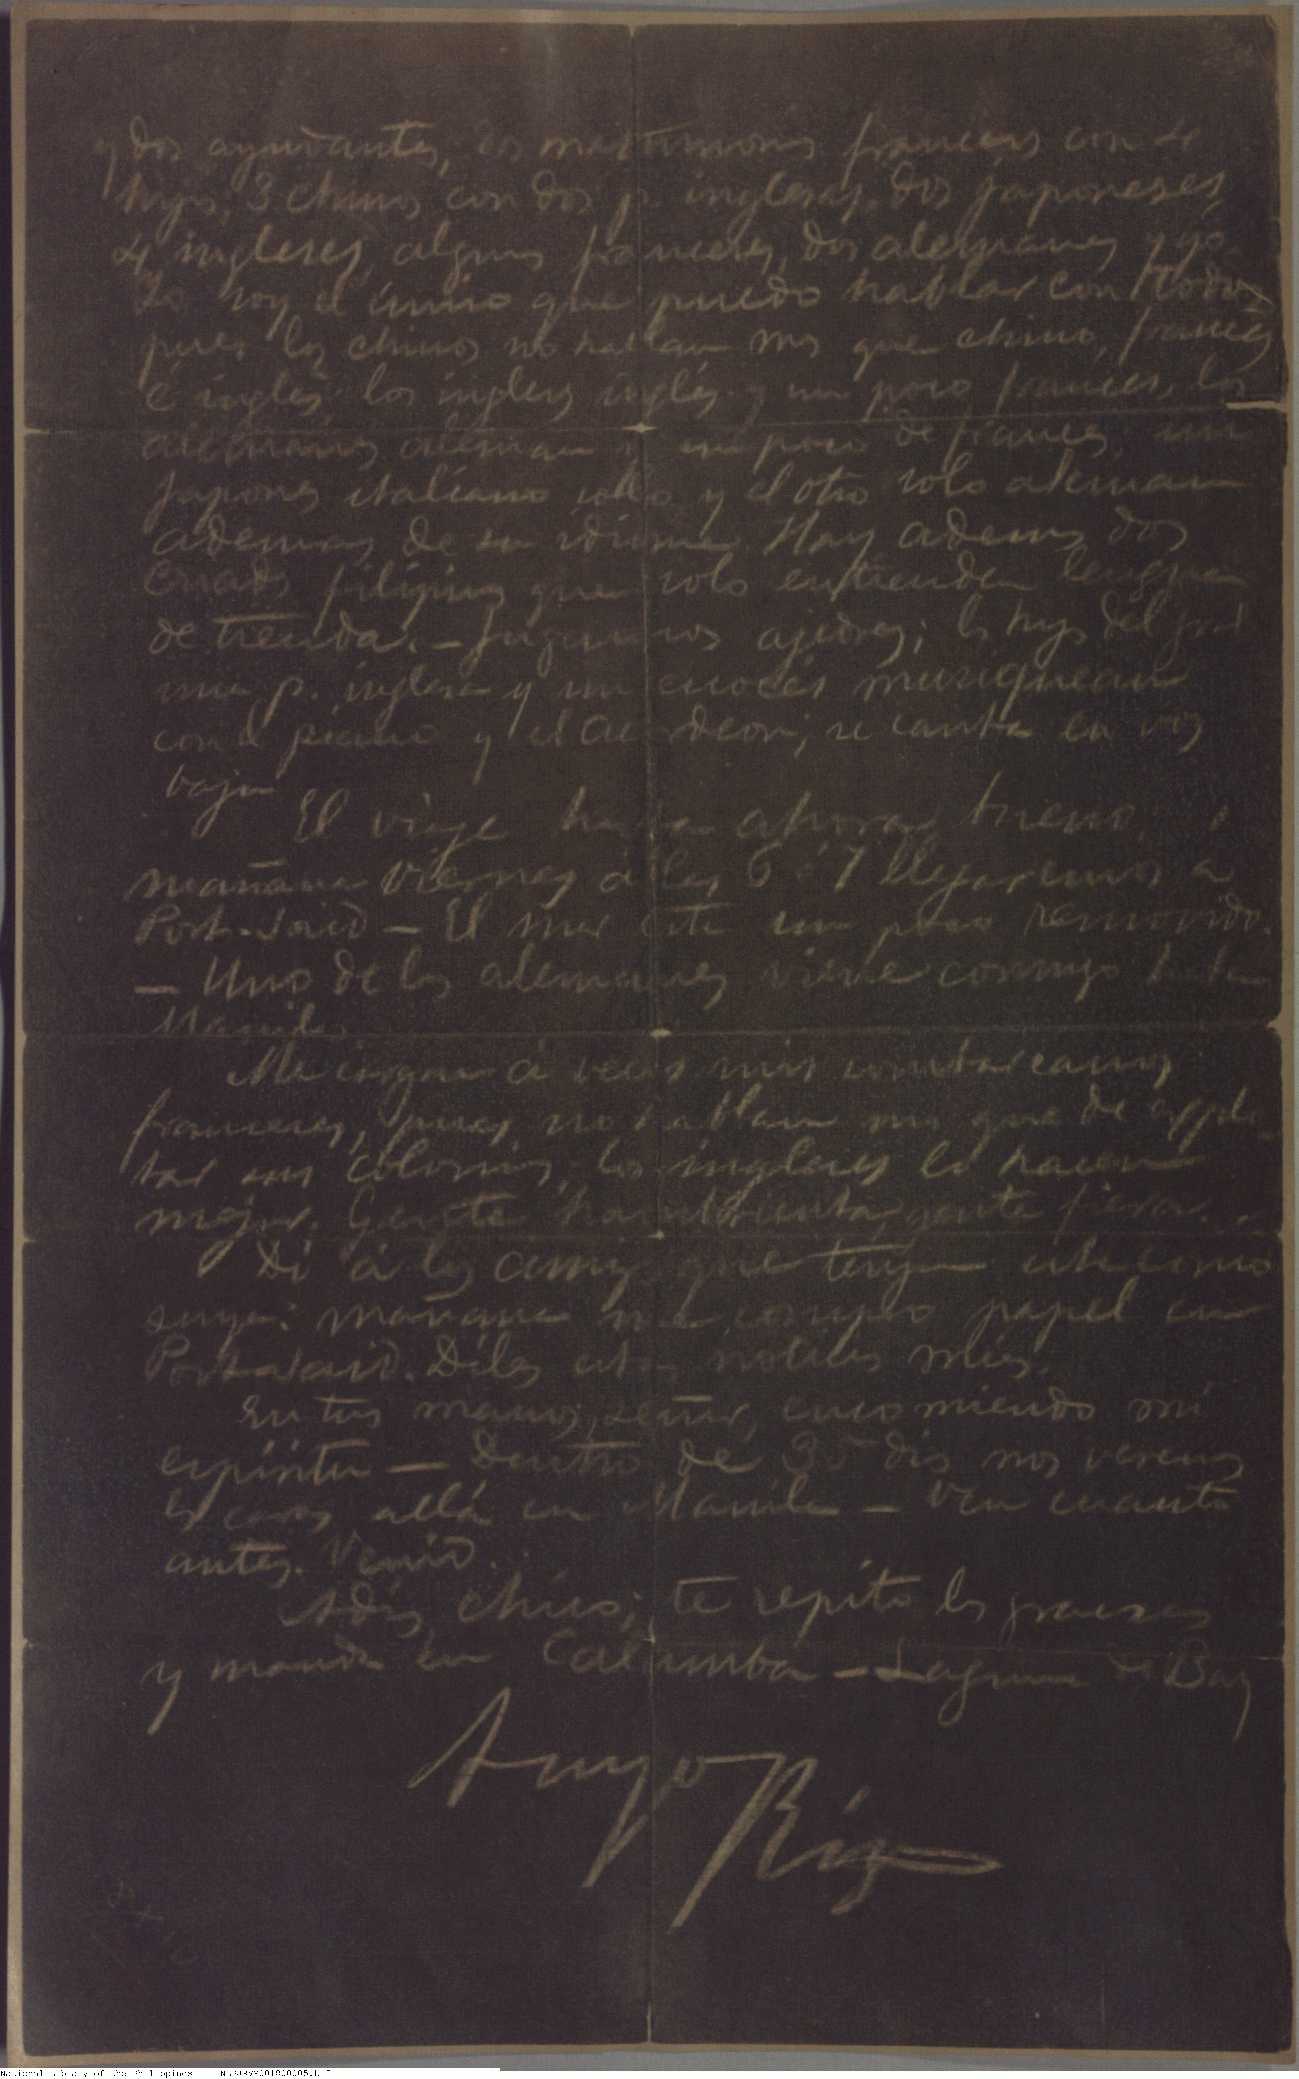 y dos ayudantes, dos matrimonios franceses con 4
hijos, 3 chinos con dos p. inglesas, dos japoneses,
4 ingleses, algunos franceses, dos alemanes y yo.
Yo soy el único que puedo hablar con todos
pues los chinos no hablan mas que chino, francés
é inglés, los ingleses inglés y un poco frances, los
alemanes aleman y un poco de frances, un
japones italiano solo y el otro solo aleman
ademas de su idioma. Hay ademas dos
criados filipinos que solo entienden lengua
de tienda. — Jugamos ajedres; los hijos del
una p. inglesa y un escocés musiquean
con el piano y el acordeon; se canta en vos
baja
El viaje hasta ahora bueno,
mañana Viernes á las 6 ó 7 llegaremos a
Port-Said — El mar está un poco removido.
— Uno de los alemanes viene conmigo hasta
Manila
á veces mis
franceses, pues no hablan mas que de explo
tar sus colonias, los ingleses lo hacen
mejor. Gente hambrienta, gente fiera.
Di á los amigos que tengan esta como
suya: mañana me compro papel en
Port-Said. Diles estas noticias mias.
En tus manos, señor, encomiendo mi
espíritu — Dentro de 30 dias nos veremos
las caras allá en Manila — Ven cuanto
antes. Venid.
Adios, chico; te repito las gracias
y manda en Calamba — Laguna de Bay
Tuyo Rizal
National Library of the Philippines